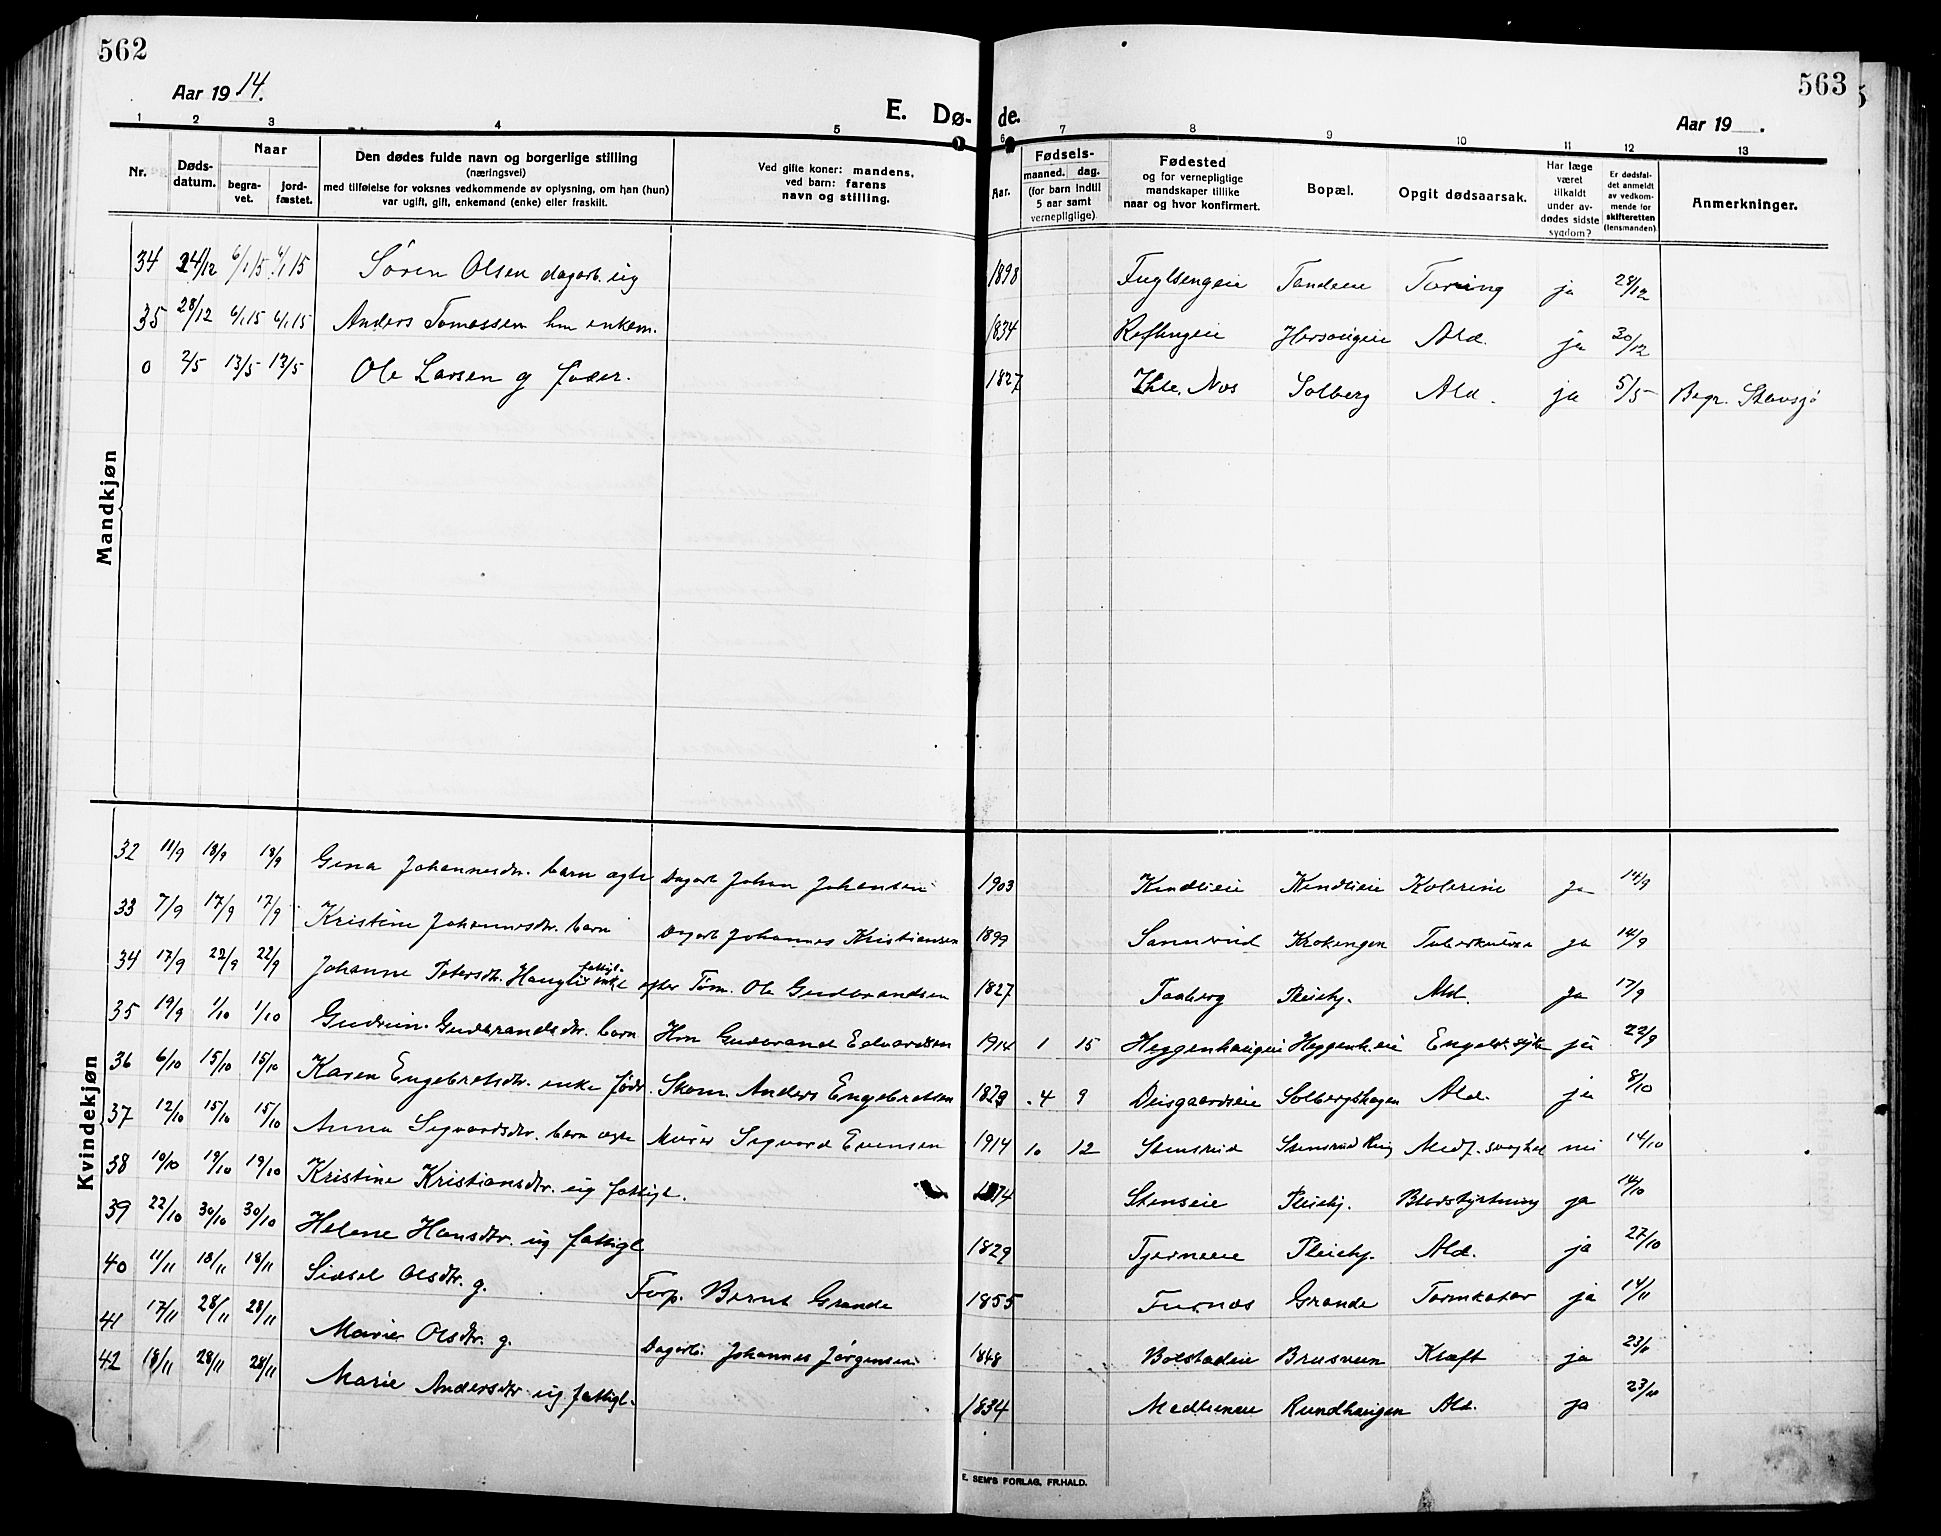 562
563
Aar 1914.
E. Dø-
de.
Aar 19 .
1 2 3 4 5 6 7 8 9 10 11 12 13
Nr.
Døds-datum.
Naar
begra-vet.
jord-fæstet.
Den dødes fulde navn og borgerlige stilling
(næringsvei)
med tilføielse for voksnes vedkommende av oplysning, om han (hun)
var ugift, gift, enkemand (enke) eller fraskilt.
Ved gifte koner: mandens,
ved barn: farens
navn og stilling.
Aar.
Fødsels-
maaned. dag.
(for barn indtil
5 aar samt
vernepligtige)
Fødested
og for vernepligtige
mandskaper tillike
naar og hvor konfirmert.
Bopæl.
Opgit dødsaarsak.
Har læge
været
tilkaldt
under av-
dødes sidste
sygdom?
Er dødsfal-
det anmeldt
av vedkom-
mende for
skifteretten
(lensmanden)
Anmerkninger.
Mandkjøn
34 24/12 6/1 15 6/1 15 Søren Olsen dagarb. ug 1898 Fuglsengeie Tandeie Tæring ja 28/12
35 28/12 6/1 15 6/1 15 Anders Tomassen hm enkem. 1834 Ald. ja 30/12
0 2/5 13/5 13/5 Ole Larsen g foder. 1827 Ihle, Nes Solberg Ald. ja 5/5 Begr. Stavsjø
Kvindekjøn
32 11/9 18/9 18/9 Gina Johannesdtr. barn ægte Dagarb Johan Johansen 1903 Kindlieie Kindlieie Kolerine ja 14/9
33 7/9 17/9 17/9 Kristine Johannesdtr. barn Dagarb Johannes Kristiansen 1899 Sannerud Krokengen Tuberkulose ja 14/9
34 17/9 22/9 22/9 Johanne Petersdtr. Hauglie fattigl. enke efter Tøm. Ole Gudbrandsen 1827 Faaberg Pleiehj. Ald. ja 17/9
35 19/9 1/10 1/10 Gudrun Gudbrandsdtr. barn Hm Gudbrand Edvardsen 1914 1 15 Heggenhaugeie Heggenh.eie Engelsk syke ja 22/9
36 6/10 15/10 15/10 Karen Engebretsdtr. enke fødr. Skom. Anders Engebretsen 1829 4 9 Deisgaardseie Solbergshagen Ald. ja 8/10
37 12/10 15/10 15/10 Anna Sigvardsdtr. barn ægte Murer Sigvard Evensen 1914 10 12 Stensrud Stensrud Ring Medf. svaghet nei 14/10
38 10/10 19/10 19/10 Kristine Kristiansdtr. ug fattigl. Stenseie Pleiehj. Blodstyrtning ja 14/10
39 22/10 30/10 30/10 Helene Hansdtr. ug fattigl 1829 Tjerneeie Pleiehj. Ald. ja 27/10
40 11/11 18/11 18/11 Sidsel Olsdtr. g. Forp. Bernt Grande 1855 Furnes Grande Tarmkatar ja 14/11
41 17/11 28/11 28/11 Marie Olsdtr. g. Dagarb. Johannes Jørgensen 1848 Bolstadeie Brusveen Kræft ja 23/11
42 18/11 28/11 28/11 Marie Andersdtr ug. fattigl. 1834 Medlieneie Rundhaugen Ald. ja 23/11
E. SEM'S FORLAG, FR.HALD.